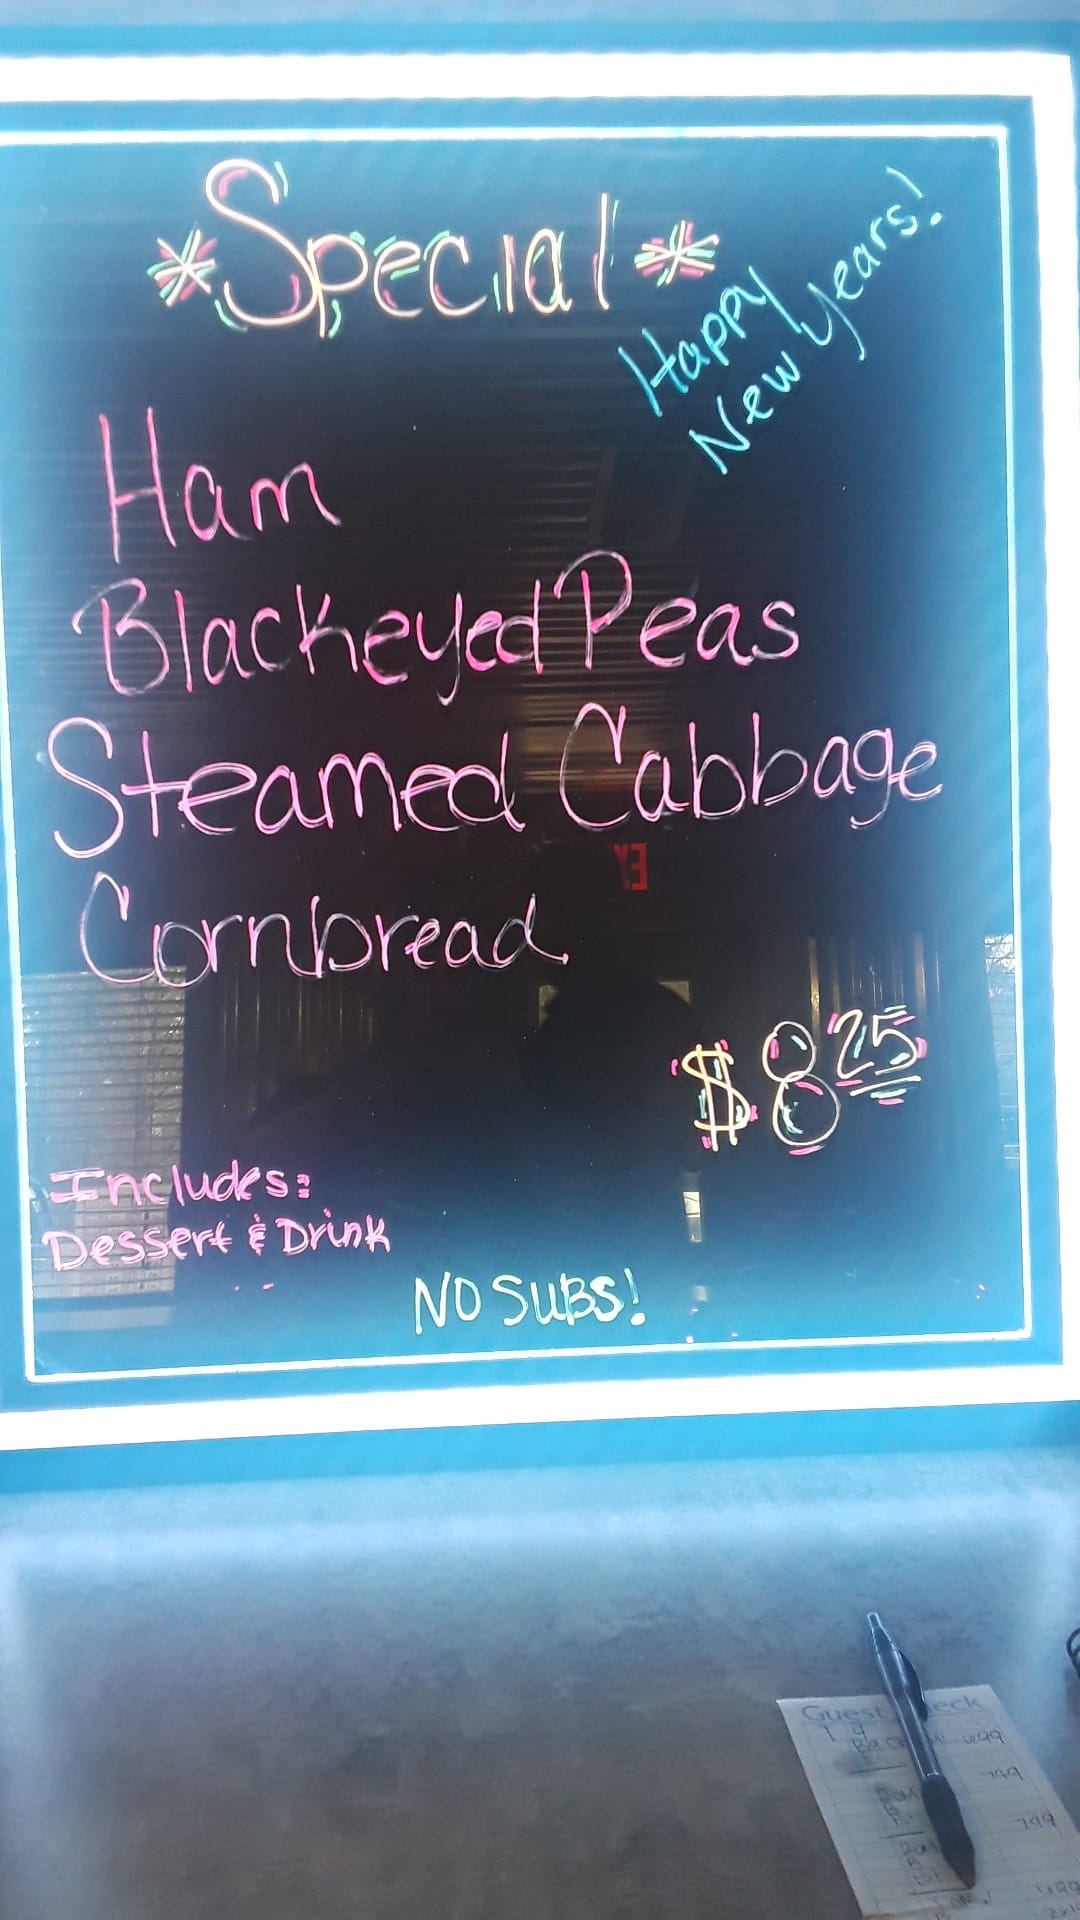 *Special*
Happy
New Years!
Ham
Blackeyed Peas
Steamed Cabbage
Cornbread
$8 25
Includes:
Dessert & Drink
NO SUBS!
EX
Guest
eck
699
749
749